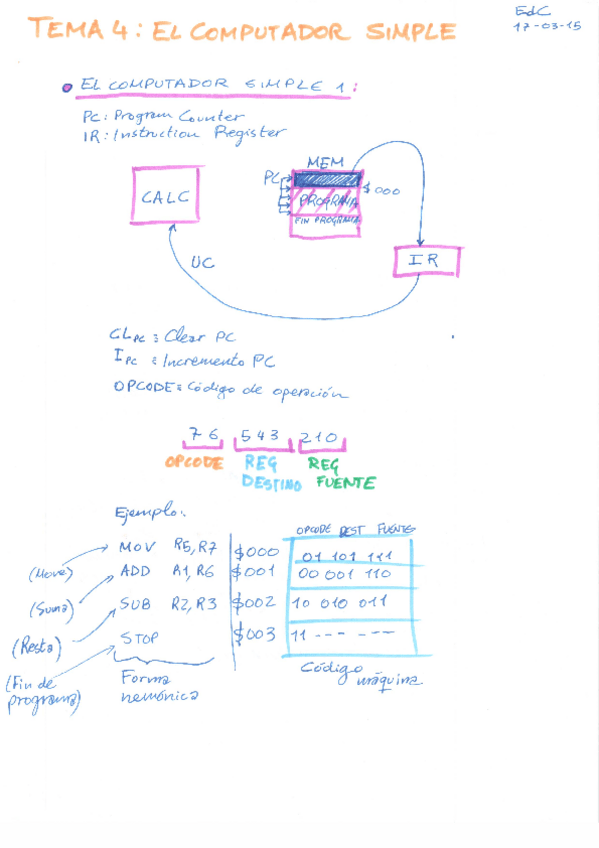 EdC
17-03-15
TEMA 4: EL COMPUTADOR SIMPLE
EL COMPUTADOR SIMPLE 1:
PC: Program Counter
IR: Instruction Register
MEM
PC
$000
CALC
PROGRAMA
FIN PROGRAMA
IR
UC
CLPC: Clear PC
IPC: Incremento PC
OPCODE: Código de operación
76 543 210
OPCODE REG DESTINO REG FUENTE
Ejemplo:
OPCODE DEST FUENTE
(Move) MOV R5,R7 $000 01 101 111
(Suma) ADD R1,R6 $001 00 001 110
(Resta) SUB R2,R3 $002 10 010 011
(Fin de programa) STOP $003 11 --- ---
Forma nemónica
Código máquina